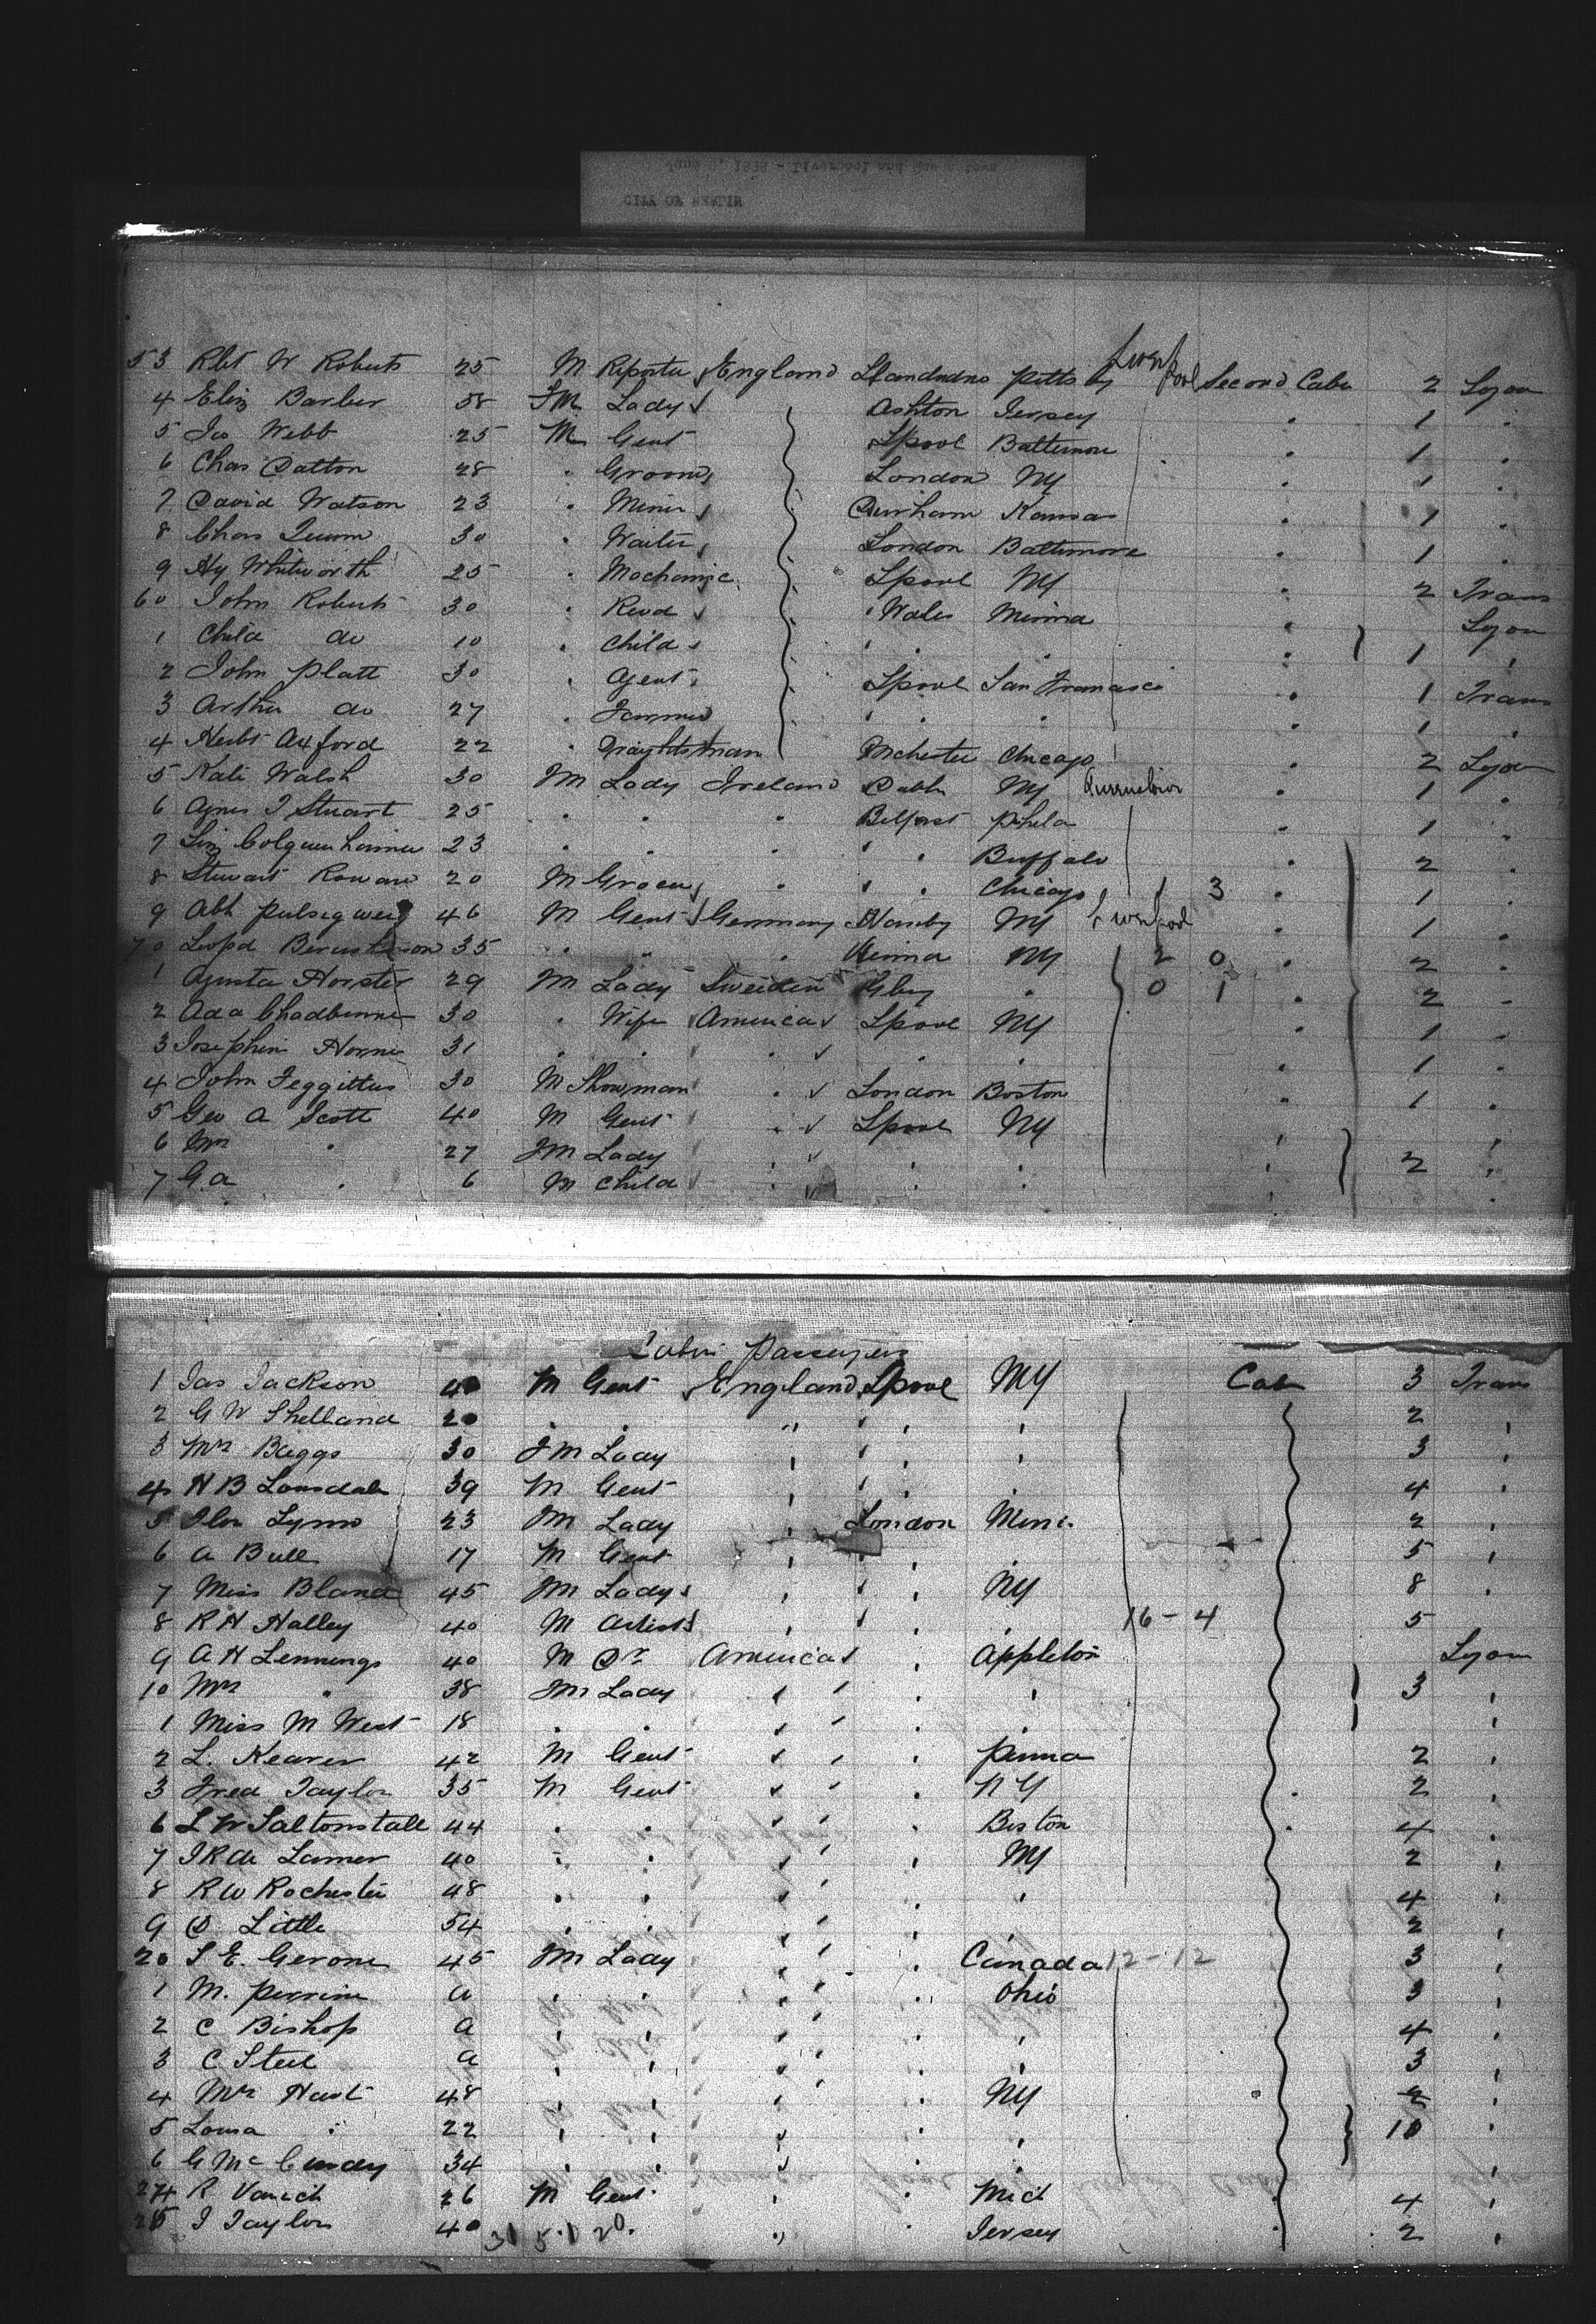 53 Rbt W Roberts 25 M Reporter England Llandudno Pittsbg Liverpool Second Cabn 2 Lyon
4 Eliz Barber 58 FM Lady Ashton Jersey 1 "
5 Jas Webb 25 M Gent Lpool Baltimore 1 "
6 Chas Dalton 28 " Groom London NY 1 "
7 David Watson 23 " Miner Durham Kansas 1 "
8 Chas Quinn 30 " Waiter London Baltimore 1 "
9 Hy Whitworth 25 " Mechanic Lpool NY 2 Trans
60 John Roberts 30 " Revd Wales Minna Lyon
1 Child do 10 " Child " " 1 "
2 John Platt 30 " Agent Lpool San Francisco 1 Trans
3 Arthur do 27 " Farmer " " 1 "
4 Herbt Axford 22 " Draughtsman Mchester Chicago 2 Lyon
5 Kate Walsh 30 FM Lady Ireland Dublin NY 1 "
6 Agnes J Stuart 25 " " " Belfast Phila 1 "
7 Liz 23 " " " " Buffalo 2 "
8 Stewart Rowan 20 M Grocer " " Chicago 1 3 1 "
9 Abh 46 M Gent Germany Hambg NY Liverpool 1 "
70 Leopd 35 " " " Vienna NY 2 0 2 "
1 Agusta Horster 29 FM Lady Sweiden Gbg " 0 1 2 "
2 Ada Chadburne 30 " Wife America Lpool NY 1 "
3 Josephine Horne 31 " " " " " 1 "
4 John Feggittus 30 M Showman " London Boston 1 "
5 Geo A Scott 40 M Gent " Lpool NY "
6 Mrs " 27 FM Lady " " " 2 "
7 G.A " 6 M Child " " " "
Cabin Passengers
1 Jas Jackson 40 M Gent England Lpool NY Cab 3 Trans
2 G W Shelland 20 " " " " " 2 "
3 Mrs Baggs 30 FM Lady " " " 3 "
4 H B Lonsdale 39 M Gent " " " 4 "
5 Flor Lynn 23 FM Lady " London Minn. 2 "
6 A Bull 17 M Gent " " " 5 "
7 Miss Bland 45 FM Lady " " NY 8 "
8 R H Halley 40 M Artist " " " 16 - 4 5
9 A H Lennings 40 M Dr America " Appleton Lyon
10 Mrs " 38 FM Lady " " " 3 "
1 Miss M West 18 " " " " " "
2 L. Kearer 42 M Gent " " Penna 2 "
3 Fred Taylor 35 M Gent " " NY 2 "
6 L W Saltonstall 44 " " " " Boston 4 "
7 J R de Lamer 40 " " " " NY 2 "
8 R W Rochester 48 " " " " " 4 "
9 D Little 54 " " " " " 2 "
20 S E. Gerome 45 FM Lady " " Canada 12 - 12 3 "
1 M. Perrine a " " " " Ohio 3 "
2 C Bishop a " " " " " 4 "
3 C Steel a " " " " " 3 "
4 Mrs Hast 48 " " " " NY 2 "
5 Loma " 22 " " " " " 10 "
6 G Mc Curdy 34 " " " " " "
27 R Vanich 26 M Gent " " Mich 4 "
28 J Taylor 40 " " Jersey 2 "